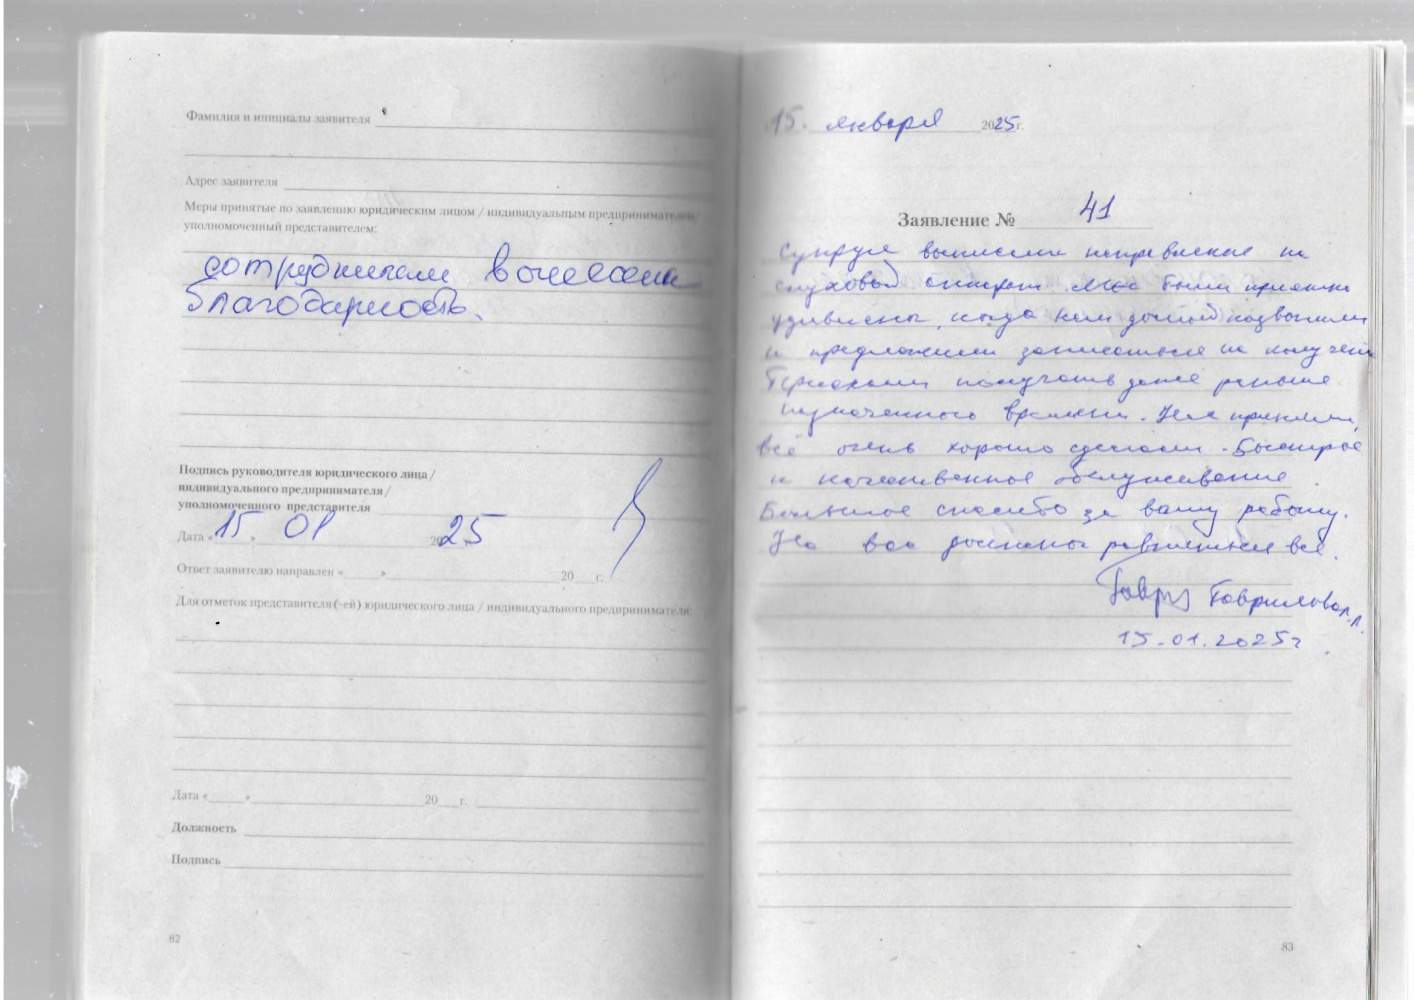 Фамилия и инициалы заявителя
Адрес заявителя
Меры принятые по заявлению юридическим лицом / индивидуальным предпринимателем/
уполномоченный представителем:
сотрудникам вынесена
благодарность.
Подпись руководителя юридического лица /
индивидуального предпринимателя /
уполномоченного представителя
Дата « 15 » 01 2025
Ответ заявителю направлен « » 20 г.
Для отметок представителя(-ей) юридического лица / индивидуального предпринимателя:
Дата « » 20 г.
Должность
Подпись
82
15. января 2025г.
Заявление № 41
Супруге выписали направление на
слуховой аппарат. Мы были приятно
удивлены, когда нам домой позвонили
и предложили записаться на
получать даже раньше
назначенного времени. Нас приняли,
всё очень хорошо сделали. Быстрое
и качественное обслуживание.
Большое спасибо за вашу работу.
На вас должны равняться все.
Гаврилова
15.01.2025г
83